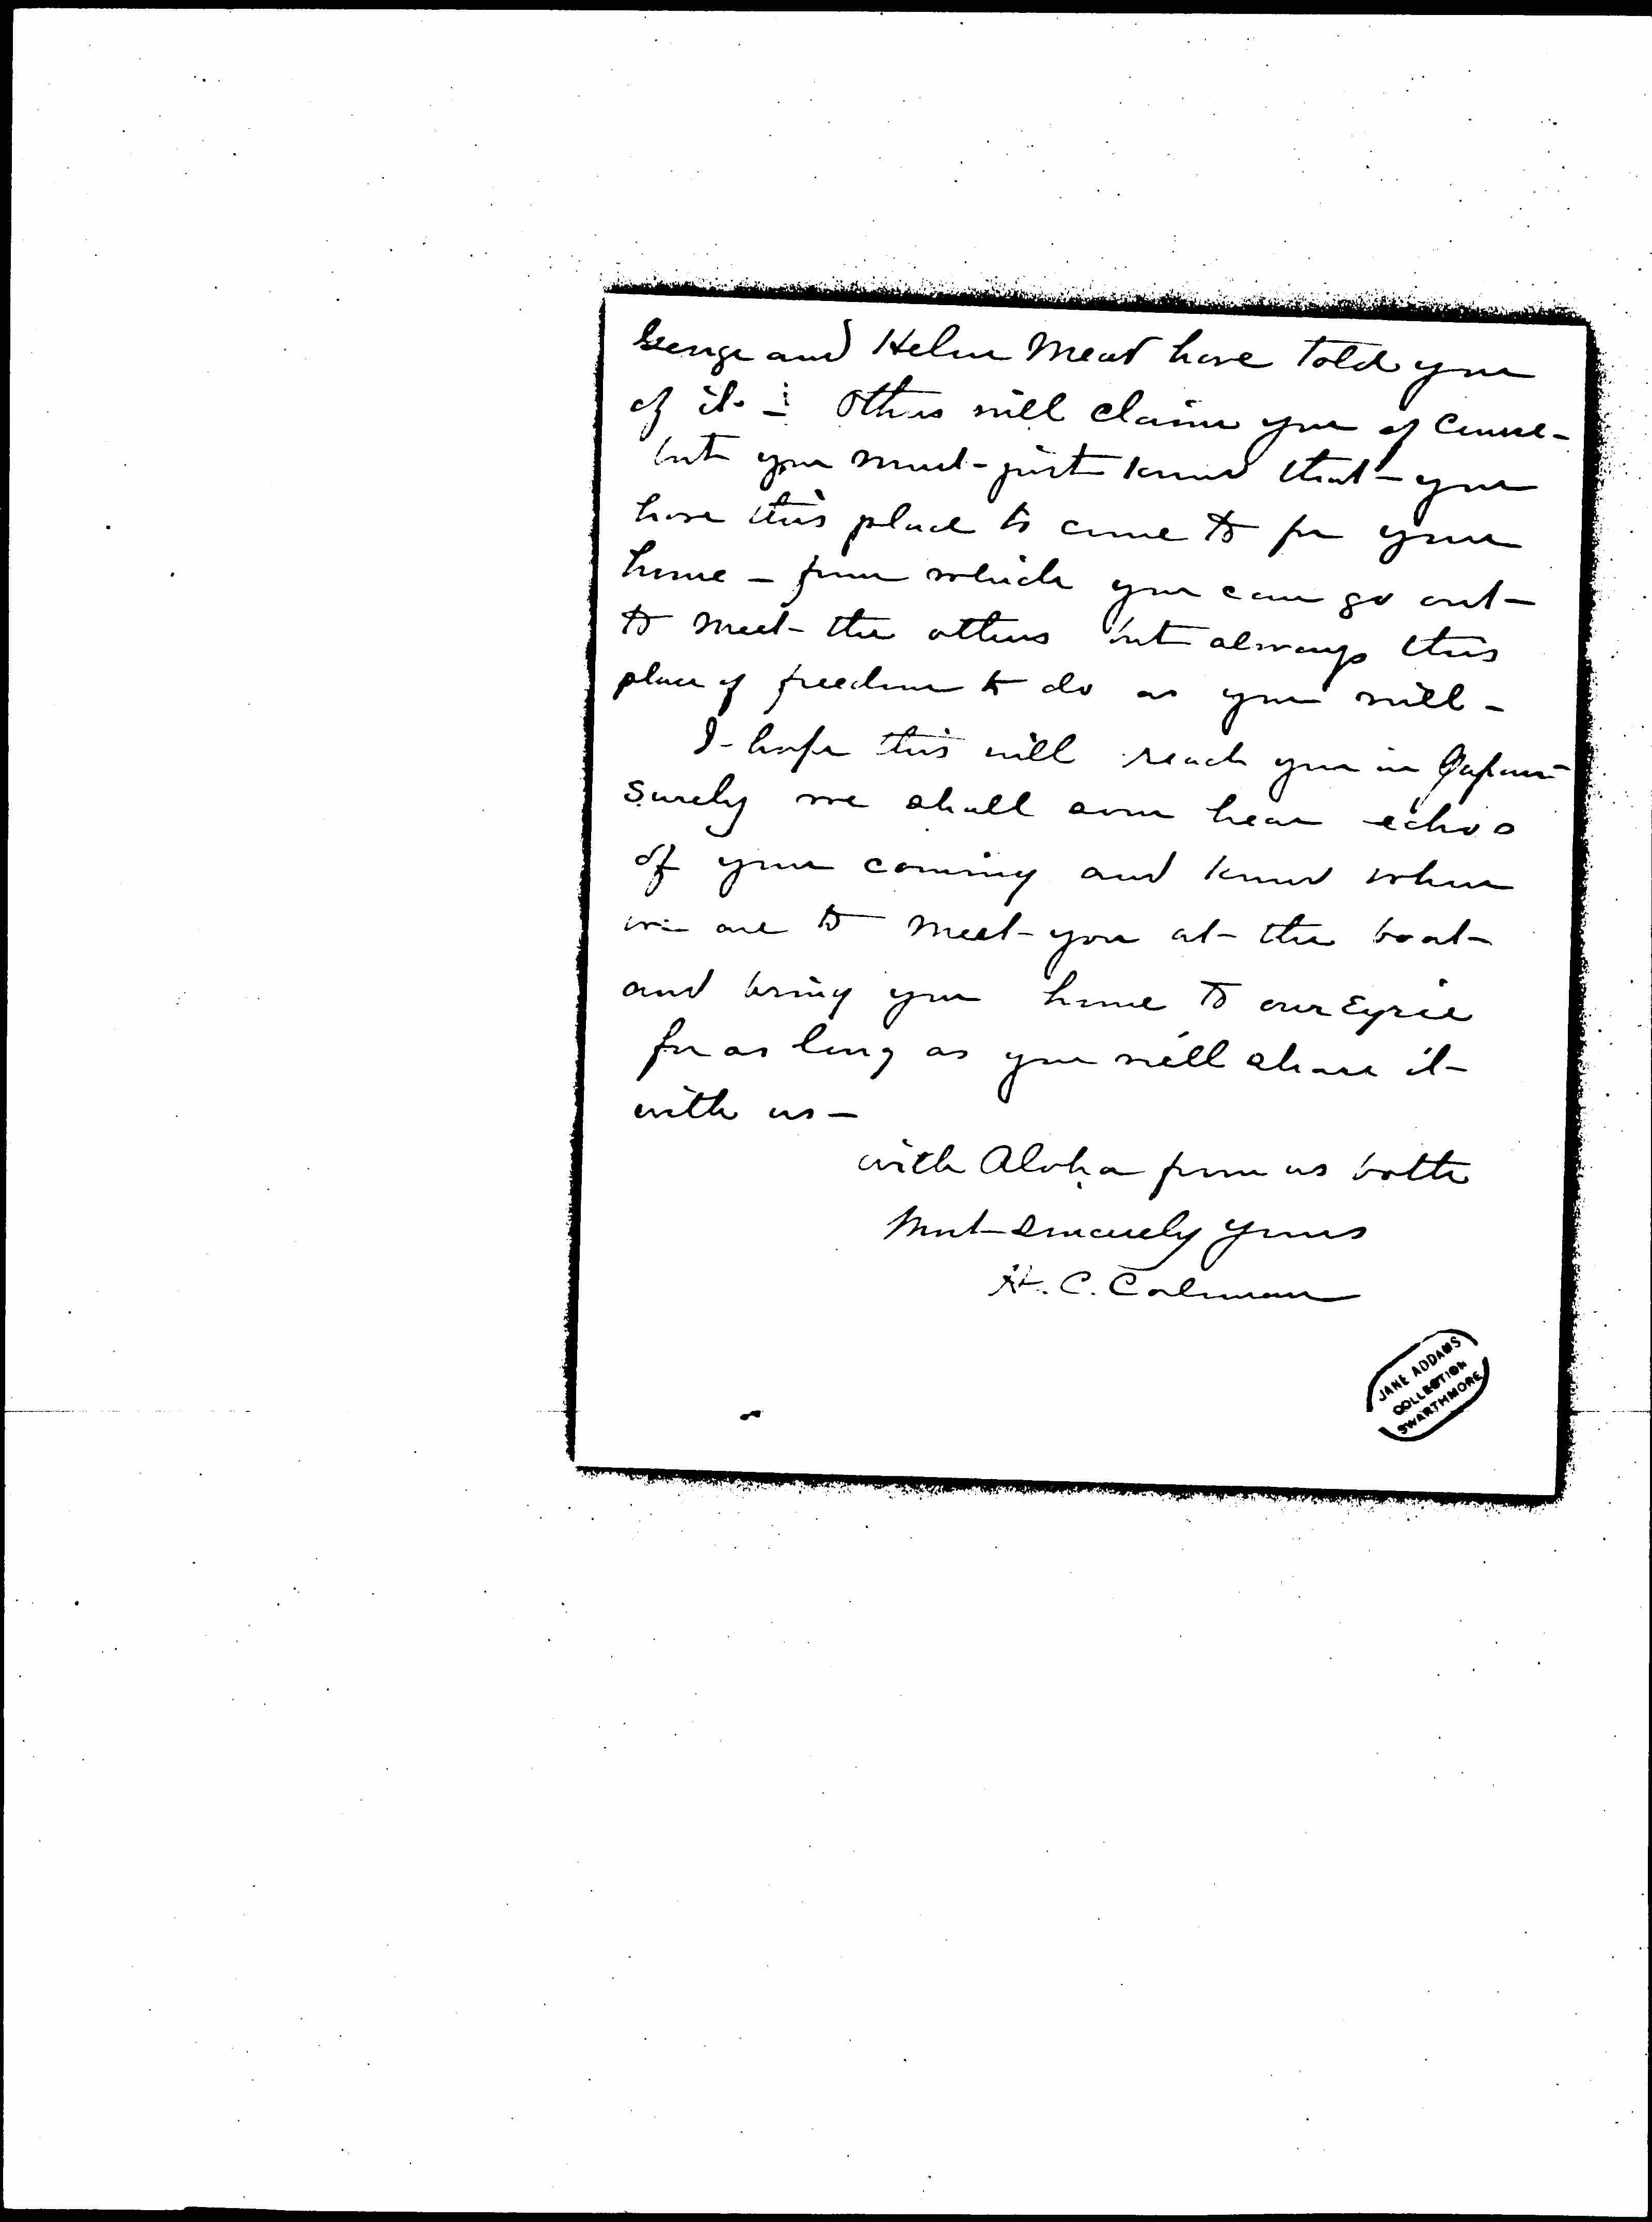 George and Helen Mead have told you
of it - Others will claim you of course -
but you must - just know that - you
have this place to come to for your
home - from which you can go out -
to meet - the others but always this
place of freedom to do as you will -
I - hope this will reach you in Japan -
surely we shall soon hear echos
of your coming and know when
we are to meet - you at - the boat -
and bring you home to our Eyrie
for as long as you will share it -
with us -
with Aloha from us both
Most sincerely yours
H. C. Coleman
JANE ADDAMS
COLLECTION
SWARTHMORE